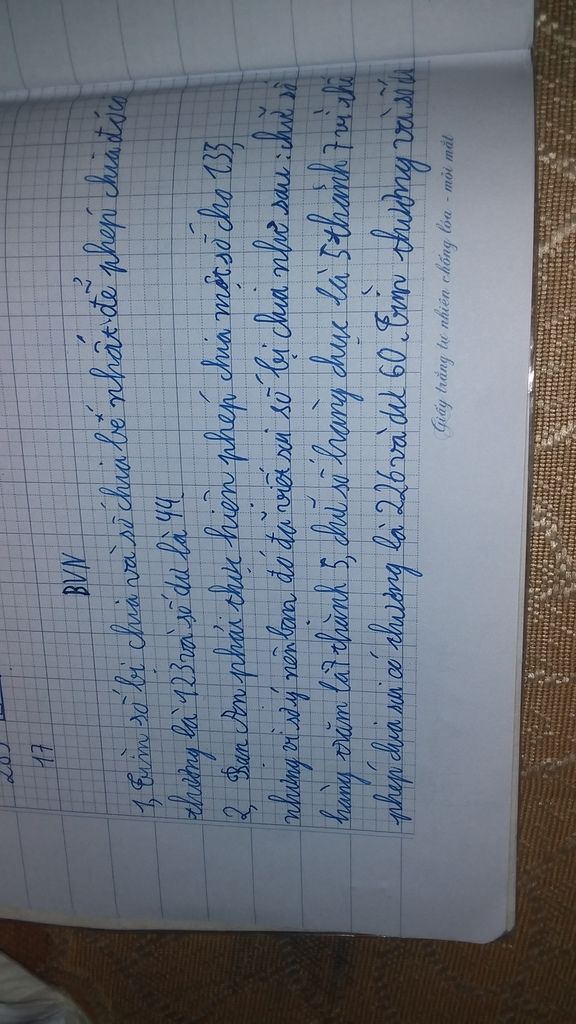 17
BVN
1, Tìm số bị chia và số chia bé nhất để phép chia đó có
thương là 123 và số dư là 44
2, Bạn An phải thực hiện phép chia một số cho 133,
nhưng vì sơ ý nên bạn đó đã viết sai số bị chia như sau: chữ số
hàng trăm là 7 thành 5, chữ số hàng chục là 5 thành 7 vì thế
phép chia sai có thương là 226 và dư 60. Tìm thương và số dư
Giấy trắng tự nhiên chống lóa - mỏi mắt